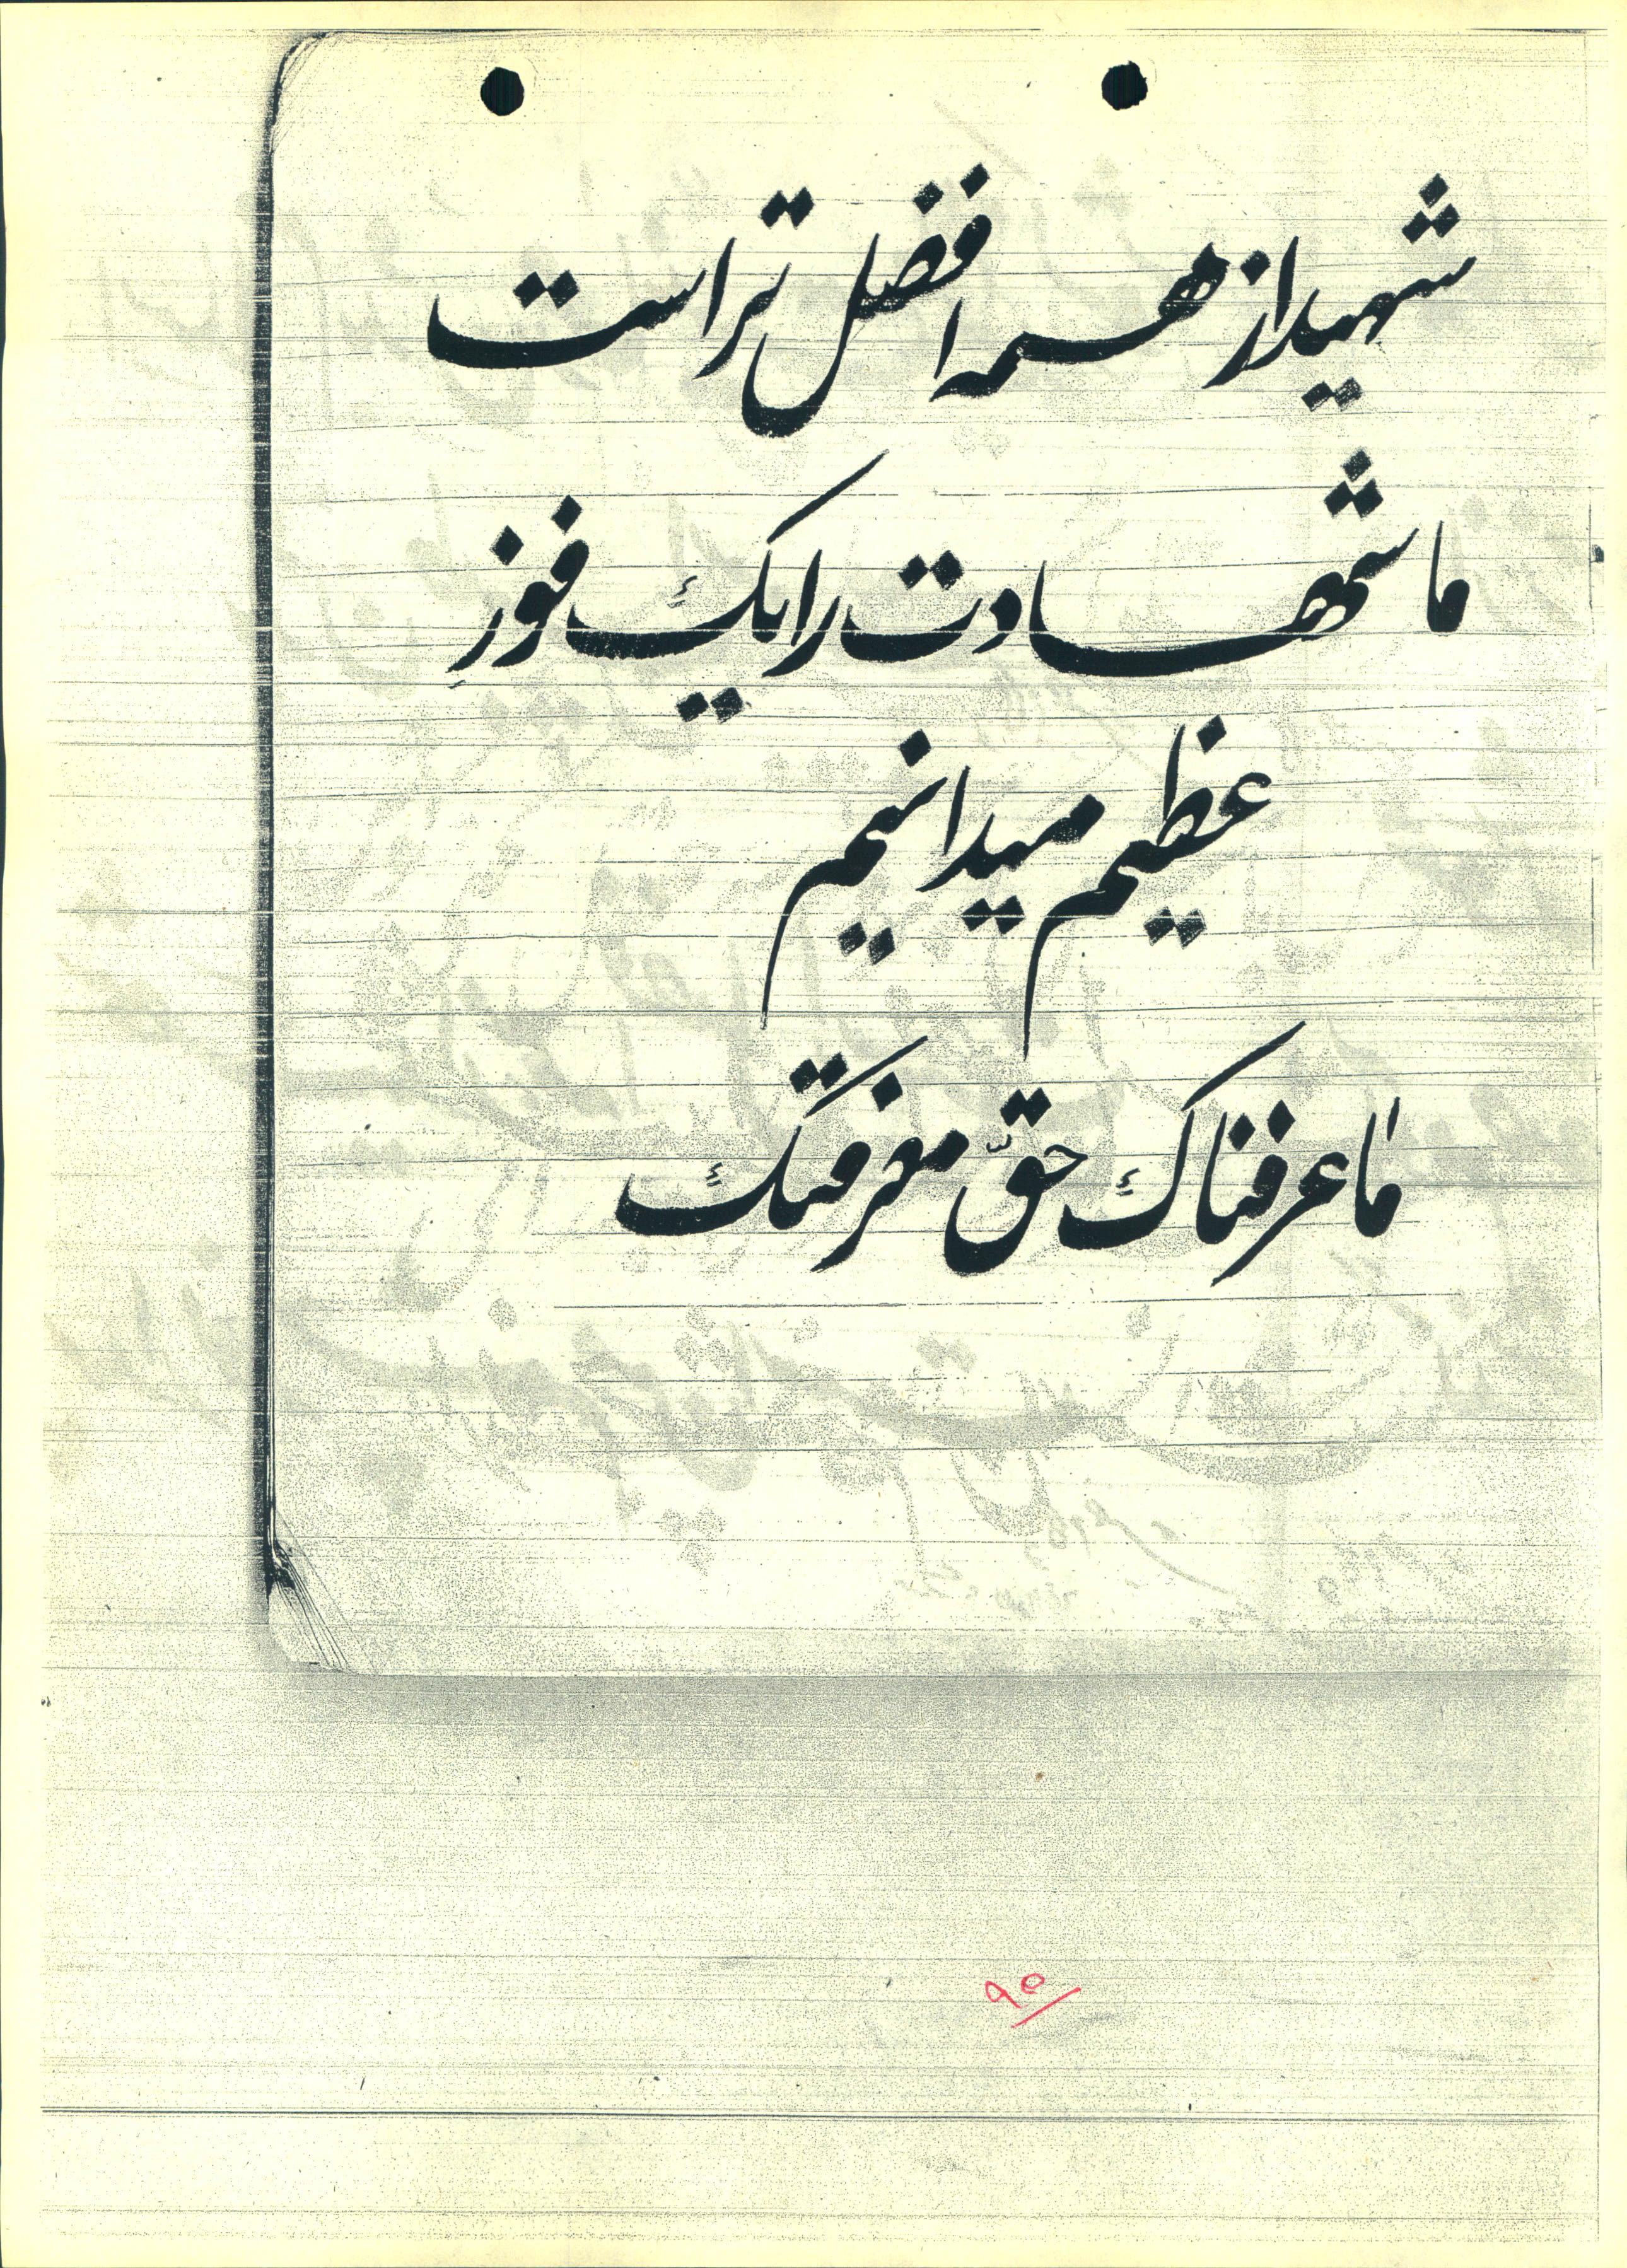 شهید از همه افضل تر است
ما شهادت را یک فوزِ
عظیم میدانیم
ما عرفناک حقّ معرفتک
۹۵